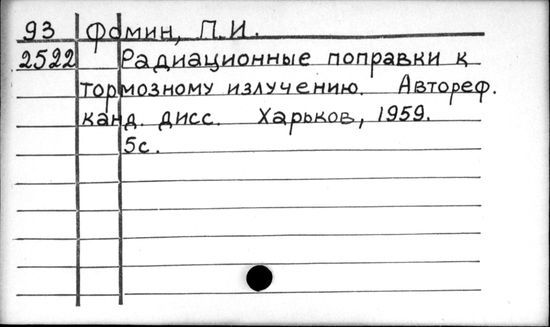 93 Фомин, П.И.
2522 Радиационные поправки к
тормозному излучению. Автореф.
канд. дисс. Харьков, 1959.
5с.